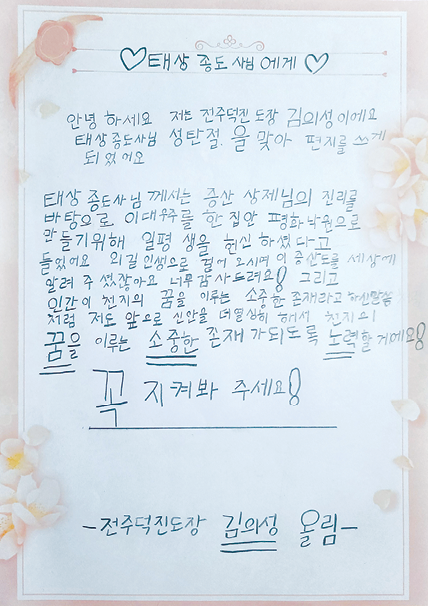 ♡태상 종도사님에게♡
안녕 하세요 저는 전주덕진도장 김의성이에요
태상종도사님 성탄절.을 맞아 편지를 쓰게
되었어요
태상 종도사님 께서는 증산 상제님의 진리를
바탕으로 이대우주를 한 집안 평화낙원으로
만들기위해 일평 생을 헌신 하셨다고
들었어요 외길 인생으로 걸어 오시면 이 증산도를 세상에
알려 주셨잖아요 너무감사드려요! 그리고
인간이 천지의 꿈을 이루는 소중한 존재라고 하신말씀
처럼 저도 앞으로 신앙을 더열심히 해서 천지의
꿈을 이루는 소중한 존재가되도록 노력할거에요!
꼭 지켜봐 주세요!
-전주덕진도장 김의성 올림-